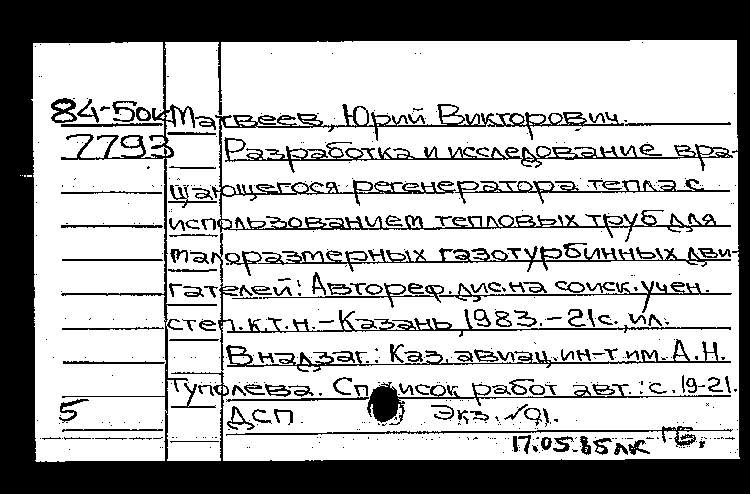 84-5ок Матвеев, Юрий Викторович.
7793 Разработка и исследование вра-
щающегося регенератора тепла с
использованием тепловых труб для
малоразмерных газотурбинных дви-
гателей: Автореф. дис. на соиск. учен.
степ. к.т.н. - Казань, 1983. - 21 с., ил.
В надзаг.: Каз. авиац. ин-т им. А.Н.
Туполева. Список работ авт.: с. 19-21.
5 ДСП Экз. №91.
17.05.85лк ГБ.